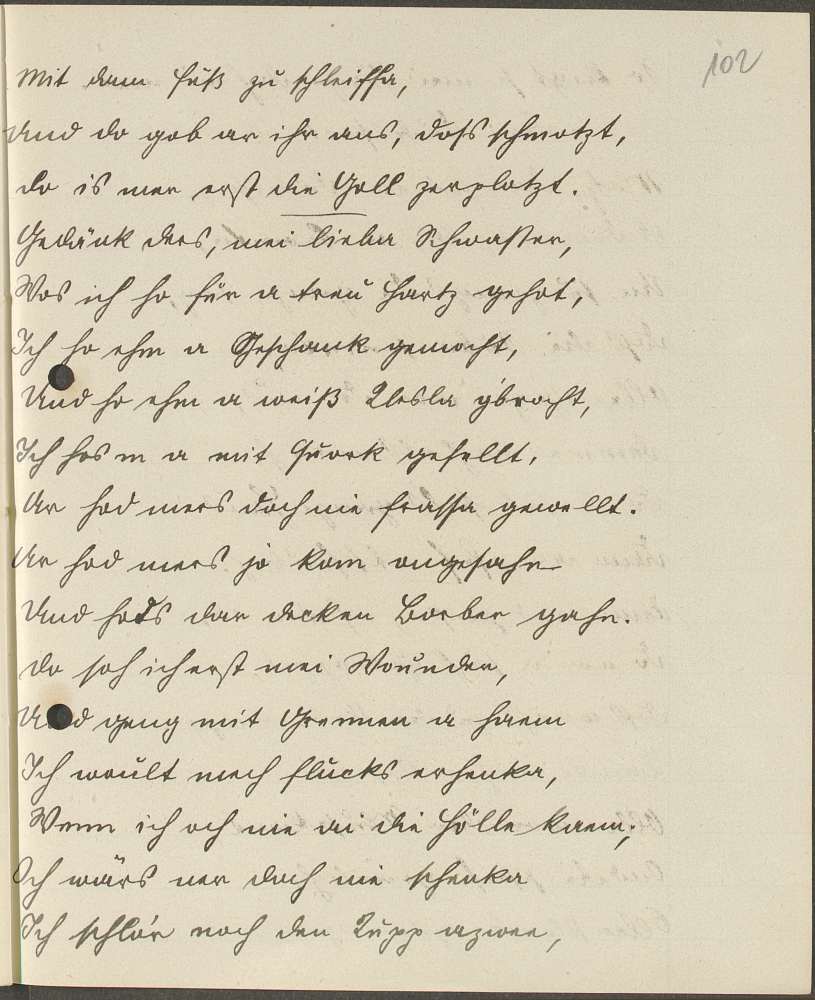 102
Mit dam Fuß zu schleiffa,
Und do gob ar ihr ans, doss schmotzt,
do is mer erst die Goll zerplotzt.
Gedänk ders, mei lieba Schwaster,
Wos ich ho für a treu Hartz gehot,
Ich ho ehm a Geschank gemocht,
Und ho ehm a weiß Klesla g'brocht,
Ich hos m a mit Quork gefellt,
Ar hod mers doch nie frassa gewellt.
Ar hod mers jo kom ongesahn
Und hods dar decken Borber gahn.
do soh ich erst mei Wounder,
Und geng mit Grennen a haem
Ich woult mech flucks erhenka,
Wenn ich och nie ai die Hölle kaem;
Ich wärs ner doch nie schenka
Ich schlo'r noch den Kupp azwee,